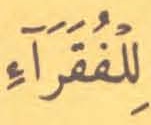 لِلْفُقَرَآءِ